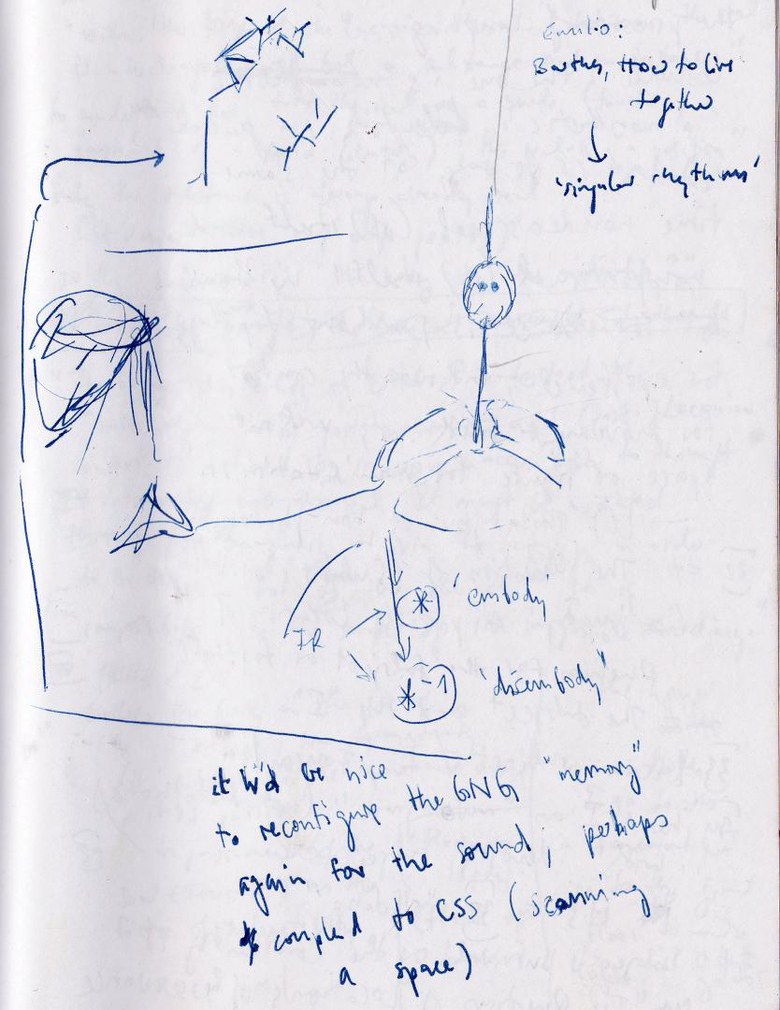 Emilio:
Barthes, How to live
together
'singular rhythms'
IR
* 'embody'
*⁻¹ "disembody"
it w'd be nice
to reconfigure the GNG "memory"
again for the sound, perhaps
coupled to CSS (scanning
a space)